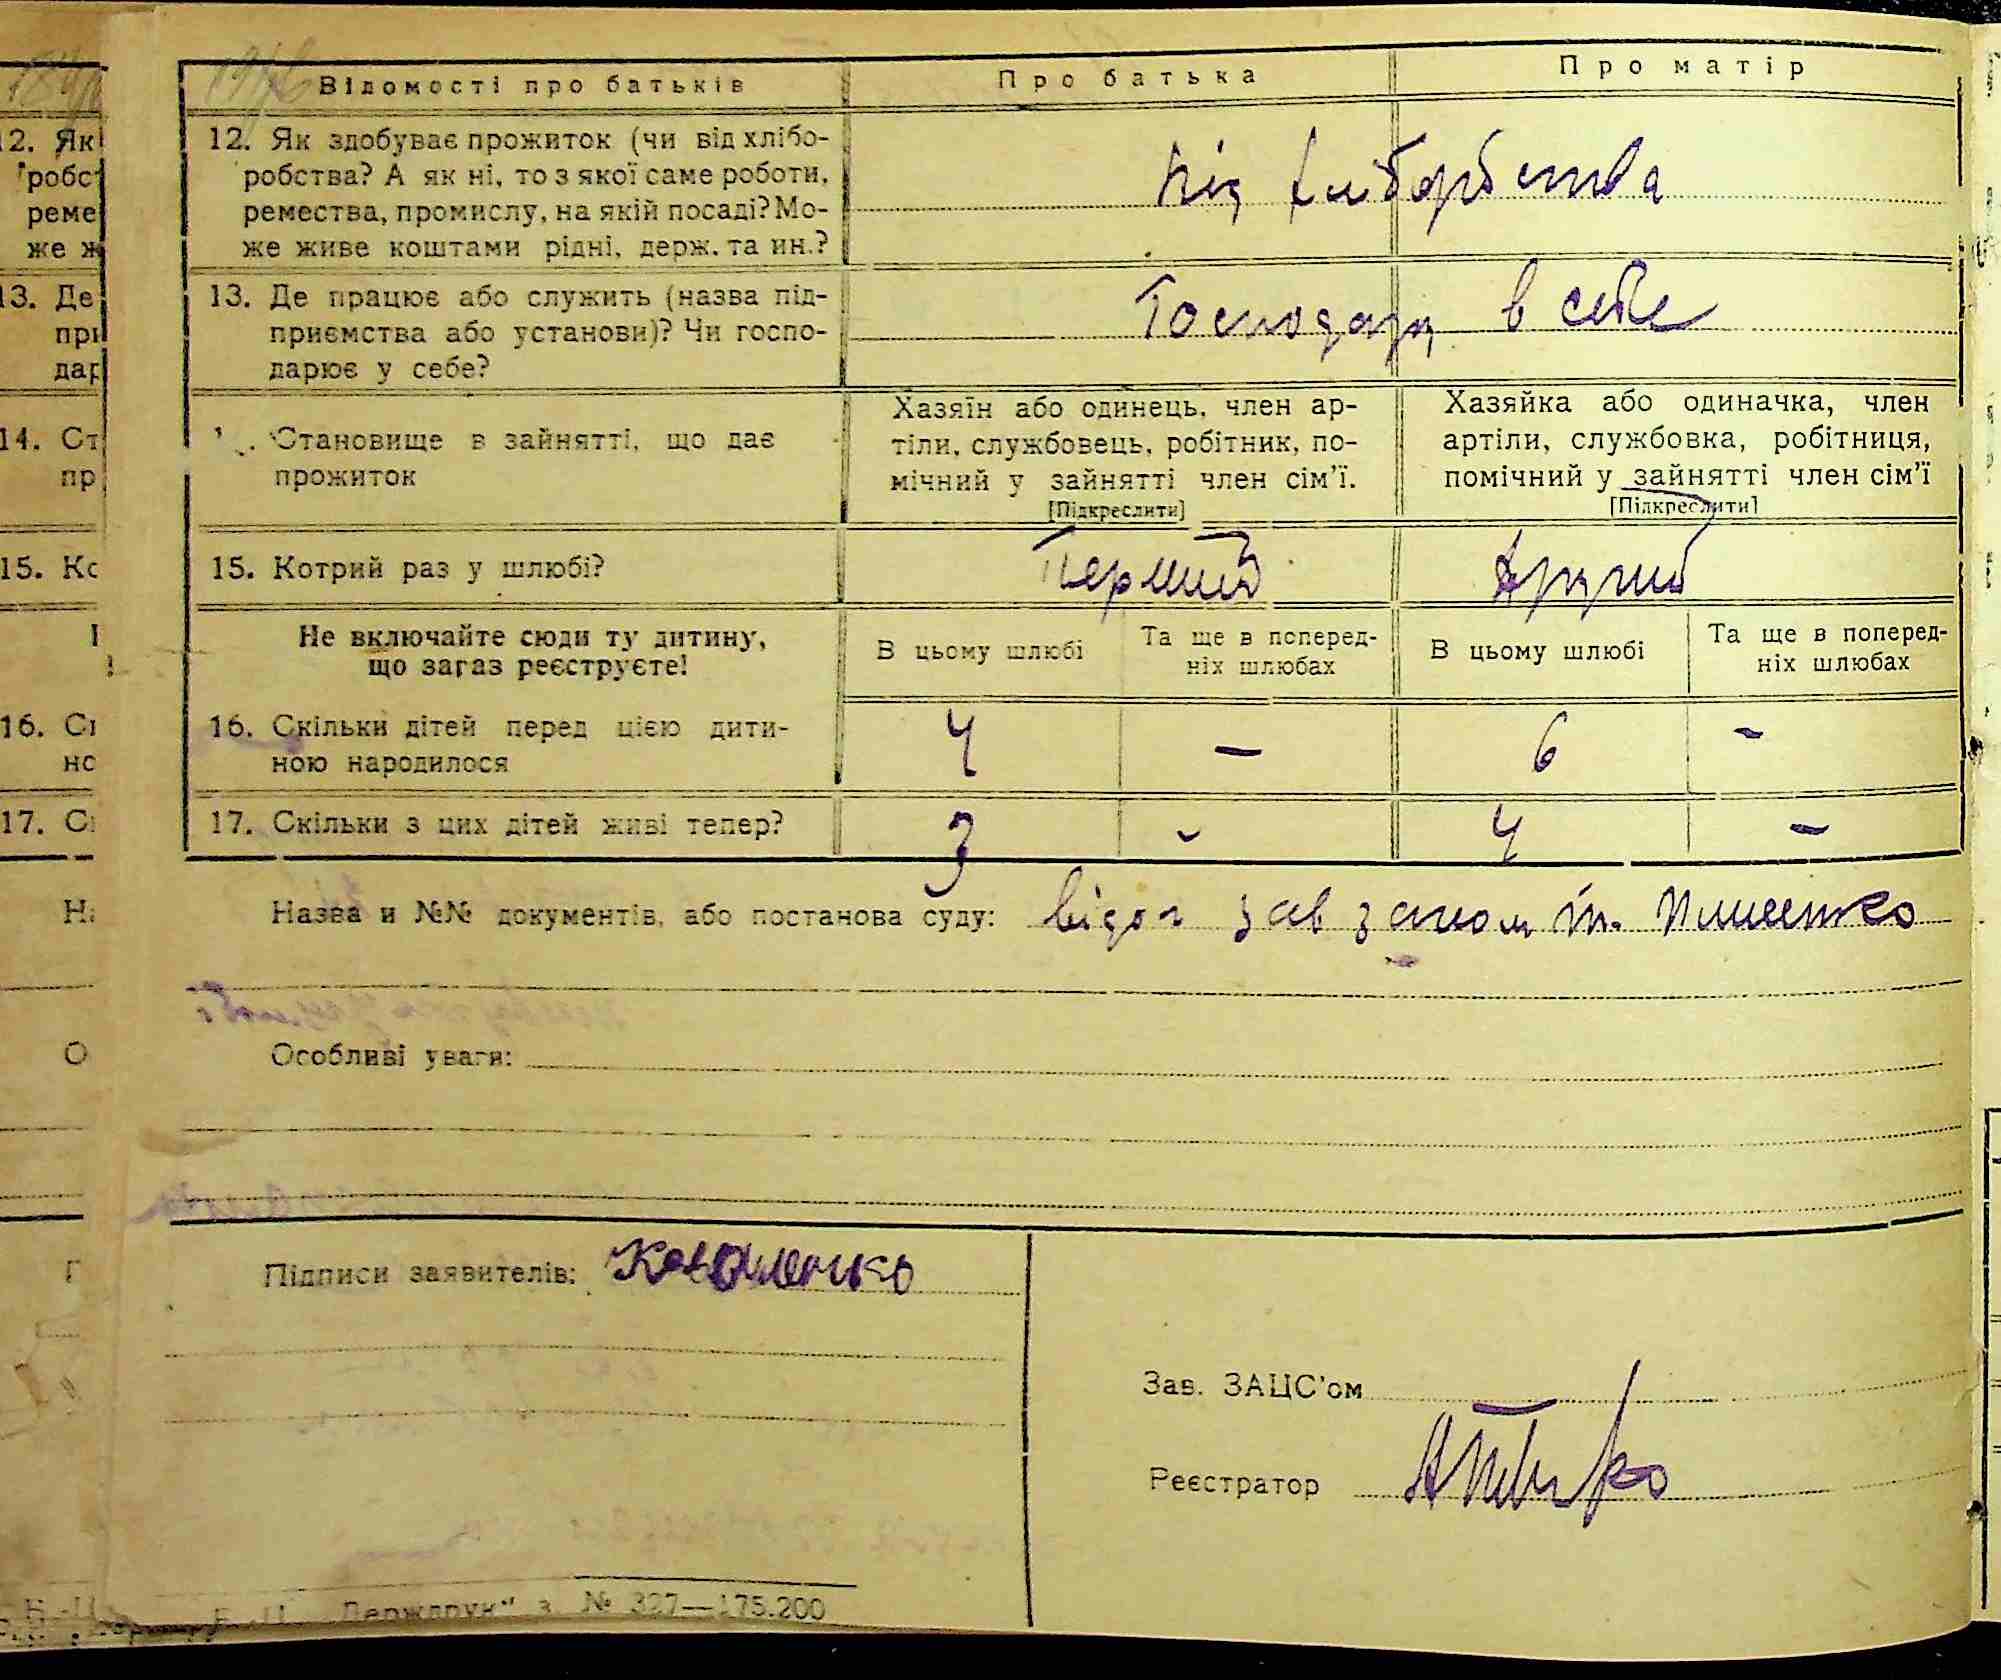 Відомості про батьків
Про батька
Про матір
12. Як здобуває прожиток (чи від хлібо-
робства? А як ні, то з якої саме роботи,
ремества, промислу, на якій посаді? Мо-
же живе коштами рідні, держ. та ин.?
Від хліборобства
13. Де працює або служить (назва під-
приємства або установи)? Чи госпо-
дарює у себе?
в себе
Становище в зайнятті, що дає
прожиток
Хазяїн або одинець, член ар-
тіли, службовець, робітник, по-
мічний у зайнятті член сім'ї.
[Підкреслити]
Хазяйка або одиначка, член
артіли, службовка, робітниця,
помічний у зайнятті член сім'ї
[Підкреслити]
15. Котрий раз у шлюбі?
Перший
Другий
Не включайте сюди ту дитину,
що зараз реєструєте!
В цьому шлюбі
Та ще в поперед-
ніх шлюбах
В цьому шлюбі
Та ще в поперед-
ніх шлюбах
16. Скільки дітей перед цією дити-
ною народилося
4
-
6
-
17. Скільки з цих дітей живі тепер?
3
-
4
-
Назва и №№ документів, або постанова суду: зав
Особливі уваги:
Підписи заявителів: Коваленко
Зав. ЗАЦС'ом
Реєстратор
"Держдрук" з. № 327—175.200
12. Як
робс
реме
же ж
13. Де
при
дар
14. Ст
пр
15. Ко
16. Ск
но
17. С